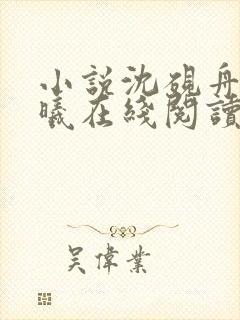 小說沈硯舟
曦在綫閱讀
吳偉業